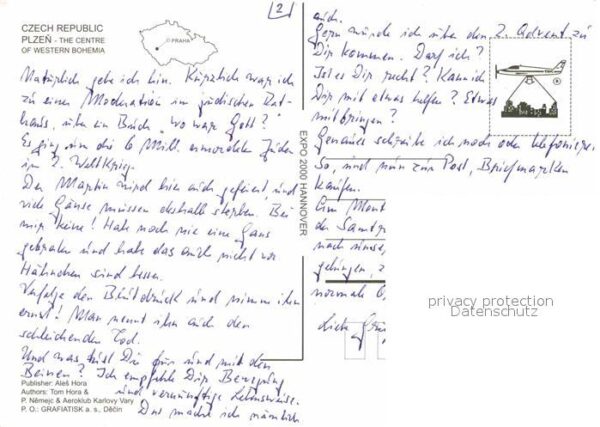 [2]
CZECH REPUBLIC
PLZEŇ - THE CENTRE
OF WESTERN BOHEMIA
PRAHA
Natürlich gehe ich hin. Kürzlich war ich
zu einer Moderation im jüdischen Rat-
haus, über ein Buch „wo war Gott?"
Es ging um die 6 Mill. ermordete Juden
im 2. Weltkrieg.
Der Martin wird hier auch gefeiert und
viele Gänse müssen deshalb sterben. Bei
mir keine! Hab noch nie eine Gans
gebraten und habe das auch nicht vor
Hähnchen sind besser.
Verfolge den Blutdruck und nimm ihn
ernst! Man nennt ihn auch den
schleichenden Tod.
Und was tust Du für und mit den
Beinen? Ich empfehle Dir Bewegung
und vernünftige Lebensweise.
Das mache ich nämlich
Publisher: Aleš Hora
Authors: Tom Hora &
P. Němejc & Aeroklub Karlovy Vary
P. O.: GRAFIATISK a. s., Děčín
EXPO 2000 HANNOVER
auch.
Gern würde ich über den 2. Advent zu
Dir kommen. Darf ich?
Ist es Dir recht? Kann ich
Dir mit etwas helfen? Etwas
mitbringen?
Genaues schreibe ich noch oder telefonisch.
So, und nun zur Post, Briefmarken
kaufen.
den
nach
normale
Liebe
privacy protection
Datenschutz